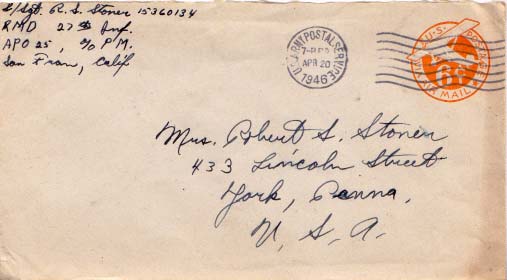 S/Sgt. R. S. Stoner 15360134
RMD 27th Inf.
APO 25, % P.M.
San Fran, Calif
U.S. ARMY POSTAL SERVICE
APR 20
1946
U.S. POSTAGE
6¢
VIA AIR MAIL
Mrs. Robert S. Stoner
433 Lincoln Street
York, Penna,
U. S. A.